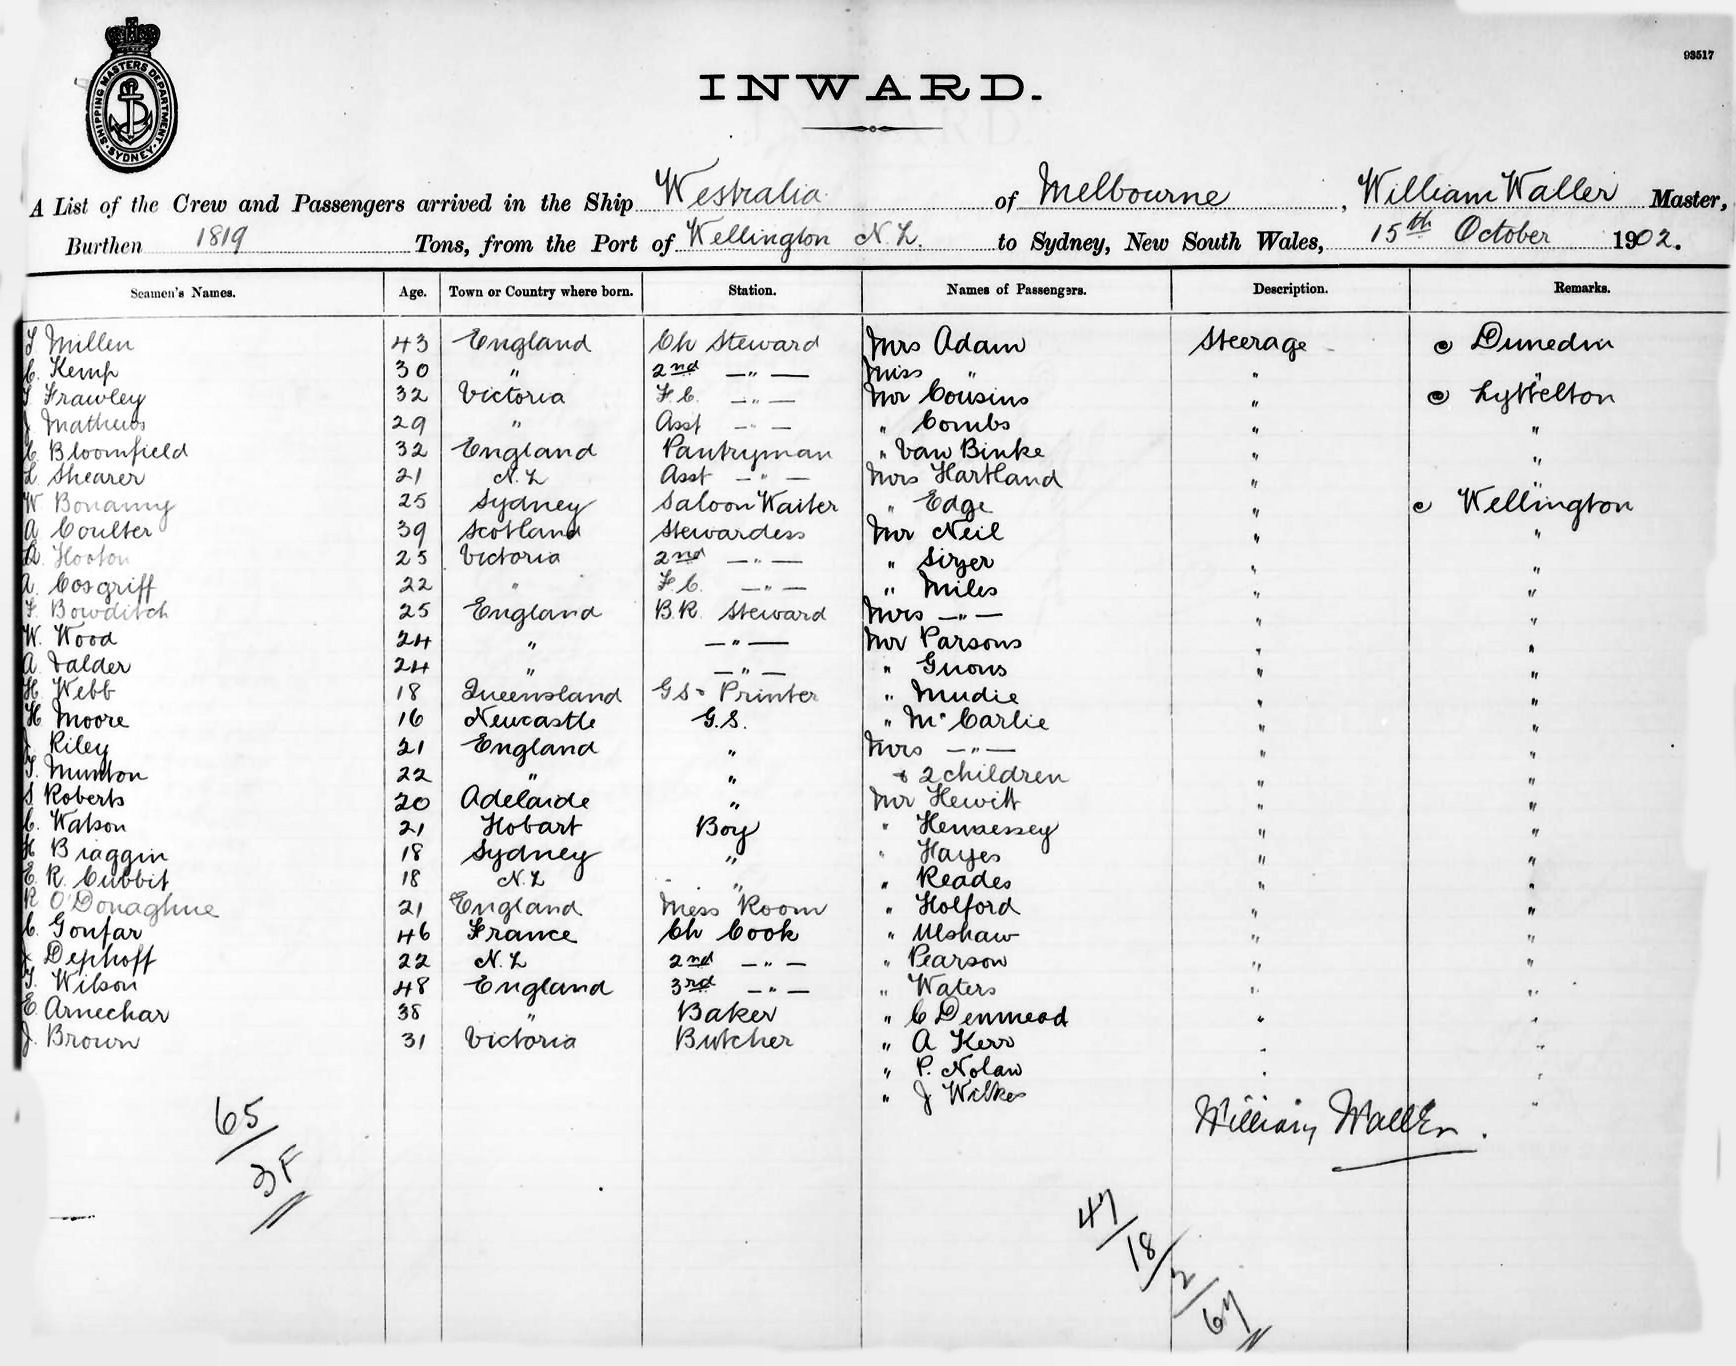 93517
SHIPPING MASTERS DEPARTMENT. SYDNEY.
INWARD.
A List of the Crew and Passengers arrived in the Ship Westralia of Melbourne, William Waller Master,
Burthen 1819 Tons, from the Port of Wellington N.Z. to Sydney, New South Wales, 15th October 1902.
Seamen's Names. Age. Town or Country where born. Station. Names of Passengers. Description. Remarks.
Millen 43 England Ch Steward Mrs Adam Steerage Dunedin
C. Kemp 30 " 2nd —"— Miss " " "
Frawley 32 Victoria F.C. —"— Mr Cousins " Lyttelton
J Mathews 29 " Asst —"— " Combs " "
C Bloomfield 32 England Pantryman " Van Binke " "
L Shearer 21 N.Z Asst —"— Mrs Hartland " "
W. Bonamy 25 Sydney Saloon Waiter " Edge " Wellington
A Coulter 39 Scotland Stewardess Mr Neil " "
Hooton 25 Victoria 2nd —"— " Sizer " "
A. Cosgriff 22 " F.C. —"— " Miles " "
F. Bowditch 25 England B.R. Steward Mrs —"— " "
W. Wood 24 " —"— Mr Parsons " "
A 24 " —"— " " "
H. Webb 18 Queensland G.S. Printer " Mudie " "
H Moore 16 Newcastle G.S. " McCarlie " "
J. Riley 21 England " Mrs —"— " "
Munton 22 " " & 2 children " "
S Roberts 20 Adelaide " Mr Hewitt " "
C. Watson 21 Hobart Boy " Hennessey " "
H Biaggin 18 Sydney " " Hayes " "
E. R. Cubbit 18 N.Z " " Reades " "
R O'Donaghue 21 England Mess Room " Holford " "
C. Gonfar 46 France Ch Cook " Ulshaw " "
J Dephoff 22 N.Z 2nd —"— " Pearson " "
Wilson 48 England 3rd —"— " Waters " "
E. Arnechar 38 " Baker " C Denmead " "
J. Brown 31 Victoria Butcher " A Kerr " "
" P. Nolan " "
" J Wilkes " "
William Waller.
65/3F
47/18/2/67